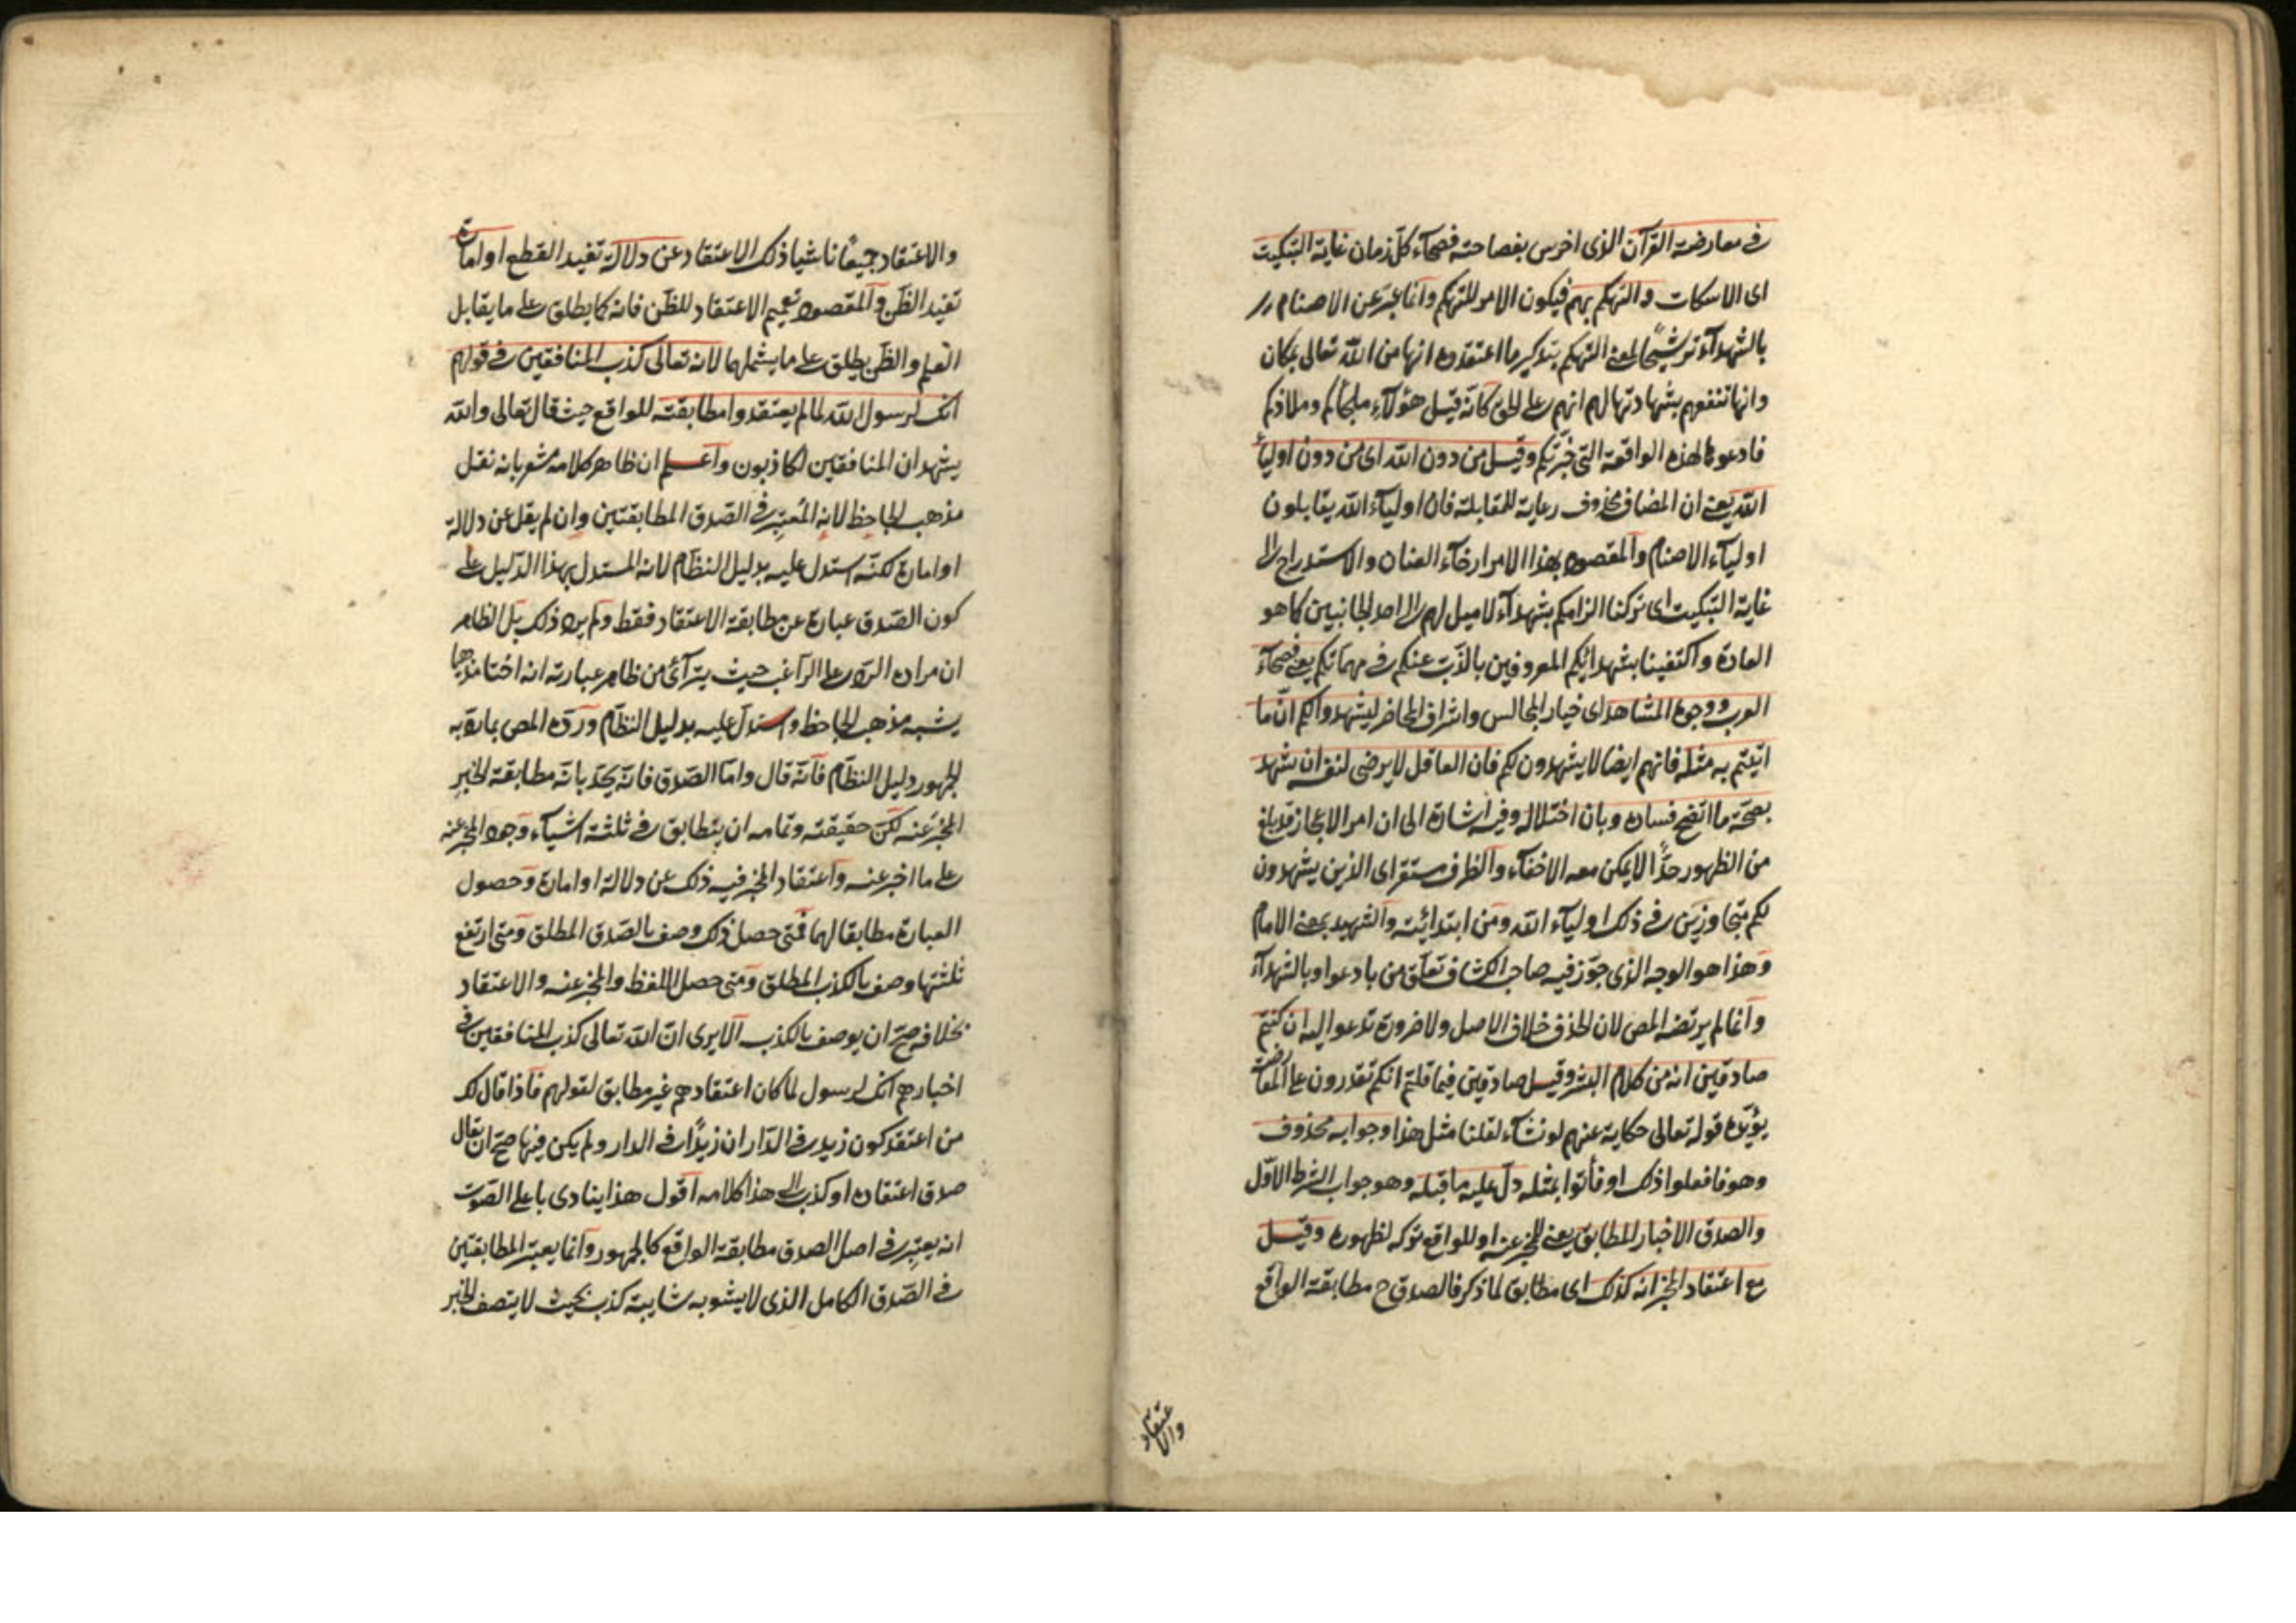 في معارضة القرآن الذى اخرس بفصاحته فصحآء كل زمان غاية التبكيت
اى الاسكات والتهكم بهم فيكون الامر للتهكم وانما عبر عن الاصنام
بالشهدآء ترشيحًا لمعنى التهكم بتذكير ما اعتقدوه انها من الله تعالى بمكان
وانها تنفعهم بشهادتها لهم انهم على الحق كأنه قيل هؤلآء ملجأكم وملاذكم
فادعوها لهذه الواقعة التى حزبتكم وقيل من دون الله اى من دون اوليآء
الله يعنى ان المضاف محذوف رعاية للمقابلة فان اوليآء الله يقابلون
اوليآء الاصنام والمقصود بهذا الامر ارخآء العنان والاستدراج الى
غاية التبكيت اى تركنا الزامكم بشهدآء لا ميل لهم الى احد الجانبين كما هو
العادة واكتفينا بشهدائكم المعروفين بالذب عنكم في مهماتكم يعنى فصحآء
العرب ووجوه المشاهد اى خيار المجالس واشراف المحاضر ليشهدوا لكم ان ما
اتيتم به مثله فانهم ايضا لا يشهدون لكم فان العاقل لا يرضى لنفسه ان يشهد
بصحة ما اتضح فساده وبان اختلاله وفيه اشارة الى ان امر الاعجاز قد بلغ
من الظهور حدًّا لا يمكن معه الاخفآء والظرف مستقر اى الذين يشهدون
لكم متجاوزين في ذلك اوليآء الله ومن ابتدائية والشهيد بمعنى الامام
وهذا هو الوجه الذى جوز فيه صاحب الكشاف تعلق من بادعوا وبالشهدآء
وانما لم يرتضه المص لان الحذف خلاف الاصل ولا ضرورة تدعو اليه ان كنتم
صادقين انه من كلام البشر وقيل صادقين فيما قلتم انكم تقدرون على المعارضة
يؤيده قوله تعالى حكاية عنهم لو نشآء لقلنا مثل هذا وجوابه محذوف
وهو فافعلوا ذلك او فأتوا بمثله دل عليه ما قبله وهو جواب الشرط الاول
والصدق الاخبار المطابق يعنى للمخبر عنه او للواقع تركه لظهوره وقيل
مع اعتقاد المخبر انه كذلك اى مطابق لما ذكر فالصدق ح مطابقة الواقع
والاعتقاد
والاعتقاد جميعًا ناشيا ذلك الاعتقاد عن دلالة تفيد القطع او امارة
تفيد الظن والمقصود تعميم الاعتقاد للظن فانه كما يطلق على ما يقابل
العلم والظن يطلق على ما يشملهما لانه تعالى كذب المنافقين في قولهم
انك لرسول الله لما لم يعتقدوا مطابقته للواقع حيث قال تعالى والله
يشهد ان المنافقين لكاذبون واعلم ان ظاهر كلامه مشعر بانه نقل
مذهب الجاحظ لانه المعتبر في الصدق المطابقتين وان لم يقل عن دلالة
او امارة لكنه استدل عليه بدليل النظام لانه المستدل بهذا الدليل على
كون الصدق عبارة عن مطابقة الاعتقاد فقط ولم يرد ذلك بل الظاهر
ان مراده الرد على الراغب حيث يترآئ من ظاهر عبارته انه اختار مذهبا
يشبه مذهب الجاحظ واستدل عليه بدليل النظام ورده المص بما رد به
الجمهور دليل النظام فانه قال واما الصدق فانه يحد بانه مطابقة الخبر
المخبر عنه لكن حقيقته وتمامه ان يتطابق في ثلثة اشيآء وجود المخبر عنه
على ما اخبر عنه واعتقاد المخبر فيه ذلك عن دلالة او امارة وحصول
العبارة مطابقا لهما فمتى حصل ذلك وصف بالصدق المطلق ومتى ارتفع
ثلثتها وصف بالكذب المطلق ومتى حصل اللفظ والمخبر عنه والاعتقاد
بخلافه صح ان يوصف بالكذب الا يرى ان الله تعالى كذب المنافقين في
اخبارهم انك لرسول لما كان اعتقادهم غير مطابق لقولهم فاذا قال لك
من اعتقد كون زيد في الدار ان زيدًا في الدار ولم يكن فيها صح ان يقال
صدق اعتقاده او كذب الى هذا كلامه اقول هذا ينادى باعلى الصوت
انه يعتبر في اصل الصدق مطابقة الواقع كالجمهور وانما يعتبر المطابقتين
في الصدق الكامل الذى لا يشوبه شايبة كذب بحيث لا يتصف الخبر